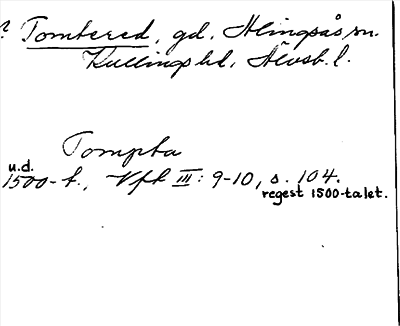 ? Tomtered, gd, Alingsås sn.
Kullings hd, Älvsb. l.
Tompta
u.d.
1500-t., Vft III: 9-10, s. 104.
regest 1500-talet.